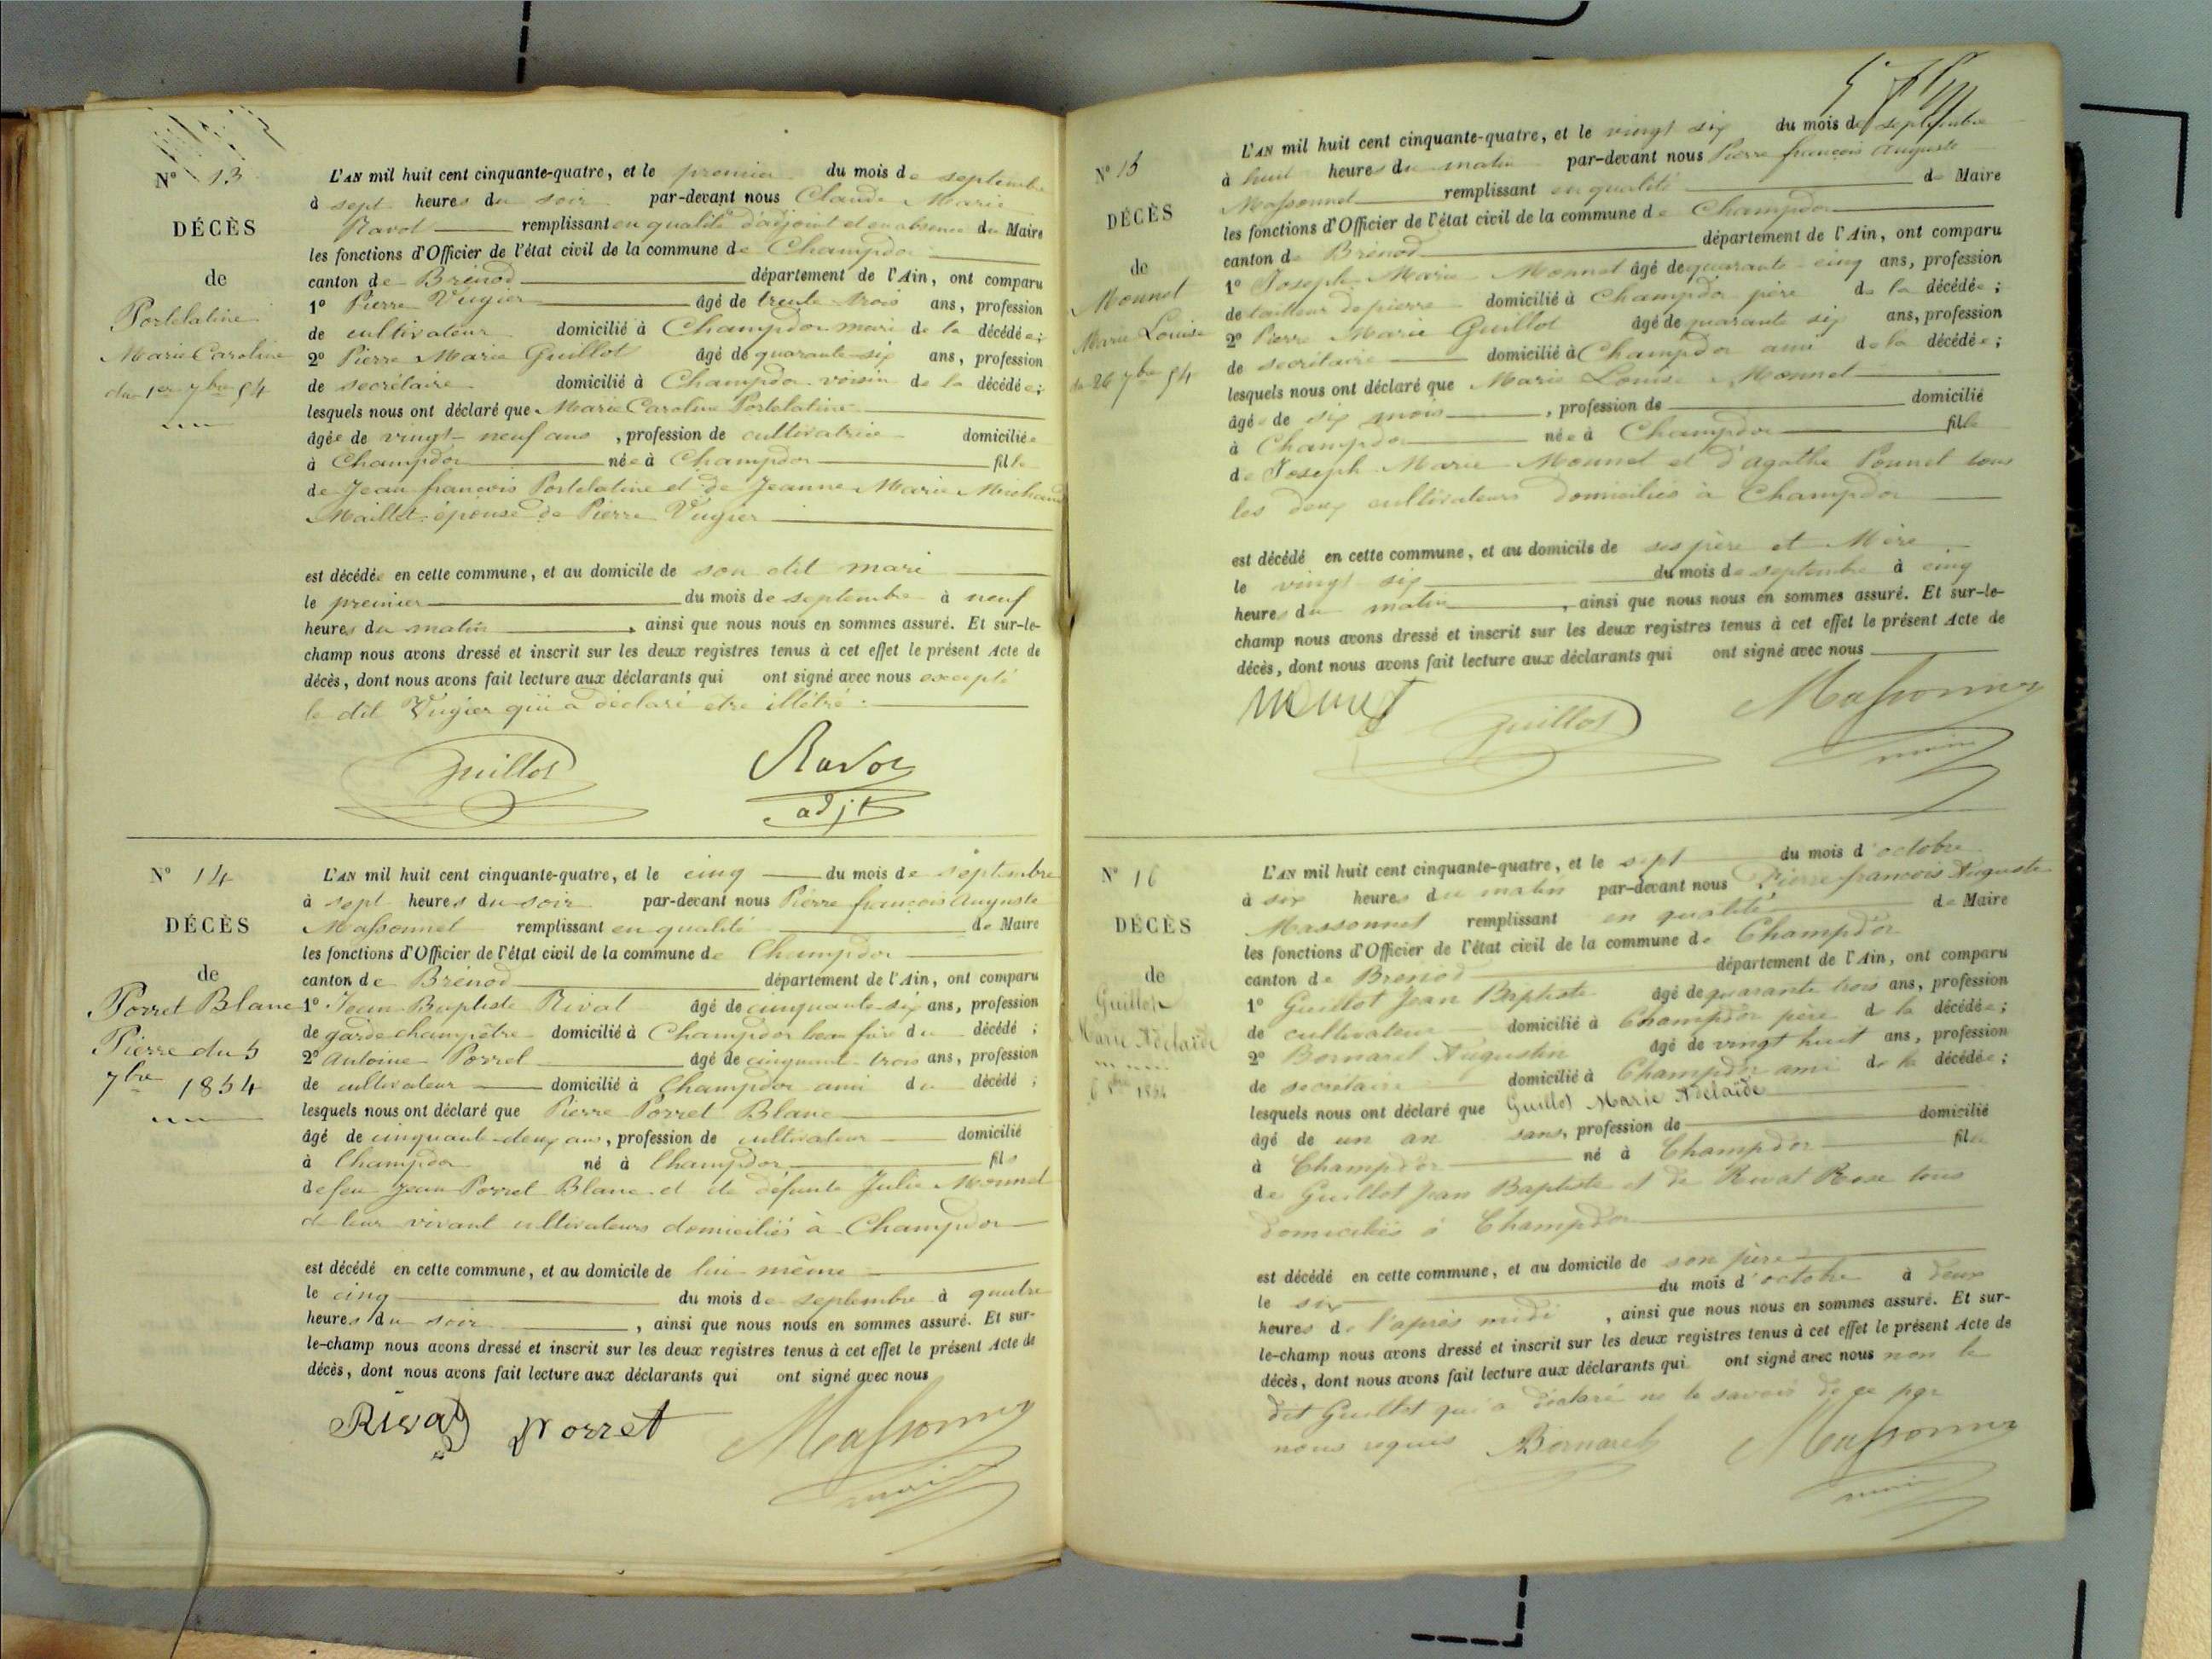 N° 13
DÉCÈS
de
Portelatine
Marie Caroline
du 1er 7bre 54
L'AN mil huit cent cinquante-quatre, et le premier du mois de septembre
à sept heures du soir par-devant nous Claude Marie
Ravot remplissant en qualité d'adjoint et en absence du Maire
les fonctions d'Officier de l'état civil de la commune de Champdor
canton de Brénod département de l'Ain, ont comparu
1° Pierre Vugier âgé de trente trois ans, profession
de cultivateur domicilié à Champdor mari de la décédée;
2° Pierre Marie Guillot âgé de quarante six ans, profession
de secrétaire domicilié à Champdor voisin de la décédée;
lesquels nous ont déclaré que Marie Caroline Portelatine
âgée de vingt-neuf ans, profession de cultivatrice domiciliée
à Champdor née à Champdor fille
de Jean françois Portelatine et de Jeanne Marie Michaud
Maillet épouse de Pierre Vugier
est décédée en cette commune, et au domicile de son dit mari
le premier du mois de septembre à neuf
heures du matin, ainsi que nous nous en sommes assuré. Et sur-le-
champ nous avons dressé et inscrit sur les deux registres tenus à cet effet le présent Acte de
décès, dont nous avons fait lecture aux déclarants qui ont signé avec nous excepté
le dit Vugier qui a déclaré etre illétré.
Guillot Ravot
adjt
N° 14
DÉCÈS
de
Porret Blanc
Pierre du 5
7bre 1854
L'AN mil huit cent cinquante-quatre, et le cinq du mois de septembre
à sept heures du soir par-devant nous Pierre françois Auguste
Massonnet remplissant en qualité de Maire
les fonctions d'Officier de l'état civil de la commune de Champdor
canton de Brénod département de l'Ain, ont comparu
1° Jean Baptiste Rivat âgé de cinquante-six ans, profession
de garde champêtre domicilié à Champdor beau frère du décédé;
2° Antoine Porret âgé de cinquante trois ans, profession
de cultivateur domicilié à Champdor ami du décédé;
lesquels nous ont déclaré que Pierre Porret Blanc
âgé de cinquante-deux ans, profession de cultivateur domicilié
à Champdor né à Champdor fils
de feu Jean Porret Blanc et de défunte Julie Monnet
de leur vivant cultivateurs domiciliés à Champdor
est décédé en cette commune, et au domicile de lui-même
le cinq du mois de septembre à quatre
heures du soir, ainsi que nous nous en sommes assuré. Et sur-
le-champ nous avons dressé et inscrit sur les deux registres tenus à cet effet le présent Acte de
décès, dont nous avons fait lecture aux déclarants qui ont signé avec nous
Rivat Porret Massonnet
maire
N° 15
DÉCÈS
de
Monnet
Marie Louise
du 26 7bre 54
L'AN mil huit cent cinquante-quatre, et le vingt six du mois de septembre
à huit heures du matin par-devant nous Pierre françois Auguste
Massonnet remplissant en qualité de Maire
les fonctions d'Officier de l'état civil de la commune de Champdor
canton de Brénod département de l'Ain, ont comparu
1° Joseph Marie Monnet âgé de quarante-cinq ans, profession
de tailleur de pierre domicilié à Champdor père de la décédée;
2° Pierre Marie Guillot âgé de quarante six ans, profession
de secrétaire domicilié à Champdor ami de la décédée;
lesquels nous ont déclaré que Marie Louise Monnet
âgée de six mois, profession de domicilié
à Champdor née à Champdor fille
de Joseph Marie Monnet et d'Agathe Ponnet tous
les deux cultivateurs domiciliés à Champdor
est décédé en cette commune, et au domicile de ses père et Mère
le vingt six du mois de septembre à cinq
heures du matin, ainsi que nous nous en sommes assuré. Et sur-le-
champ nous avons dressé et inscrit sur les deux registres tenus à cet effet le présent Acte de
décès, dont nous avons fait lecture aux déclarants qui ont signé avec nous
Guillot Massonnet
maire
N° 16
DÉCÈS
de
Guillot
Marie Adelaïde
1854
L'AN mil huit cent cinquante-quatre, et le sept du mois d'octobre
à six heures du matin par-devant nous Pierre francois Auguste
Massonnet remplissant en qualité de Maire
les fonctions d'Officier de l'état civil de la commune de Champdor
canton de Brenod département de l'Ain, ont comparu
1° Guillot Jean Baptiste âgé de quarante trois ans, profession
de cultivateur domicilié à Champdor père de la décédée;
2° Bornarel Augustin âgé de vingt huit ans, profession
de secrétaire domicilié à Champdor ami de la décédée;
lesquels nous ont déclaré que Guillot Marie Adelaïde
âgé de un an sans, profession de domicilié
à Champdor né à Champdor fille
de Guillot Jean Baptiste et de Rivat Rose tous
domiciliés à Champdor
est décédé en cette commune, et au domicile de son père
le six du mois d'octobre à deux
heures de l'après midi, ainsi que nous nous en sommes assuré. Et sur-
le-champ nous avons dressé et inscrit sur les deux registres tenus à cet effet le présent Acte de
décès, dont nous avons fait lecture aux déclarants qui ont signé avec nous non le
dit Guillot qui a déclaré ne le savoir de ce par
nous requis Bornarel Massonnet
maire